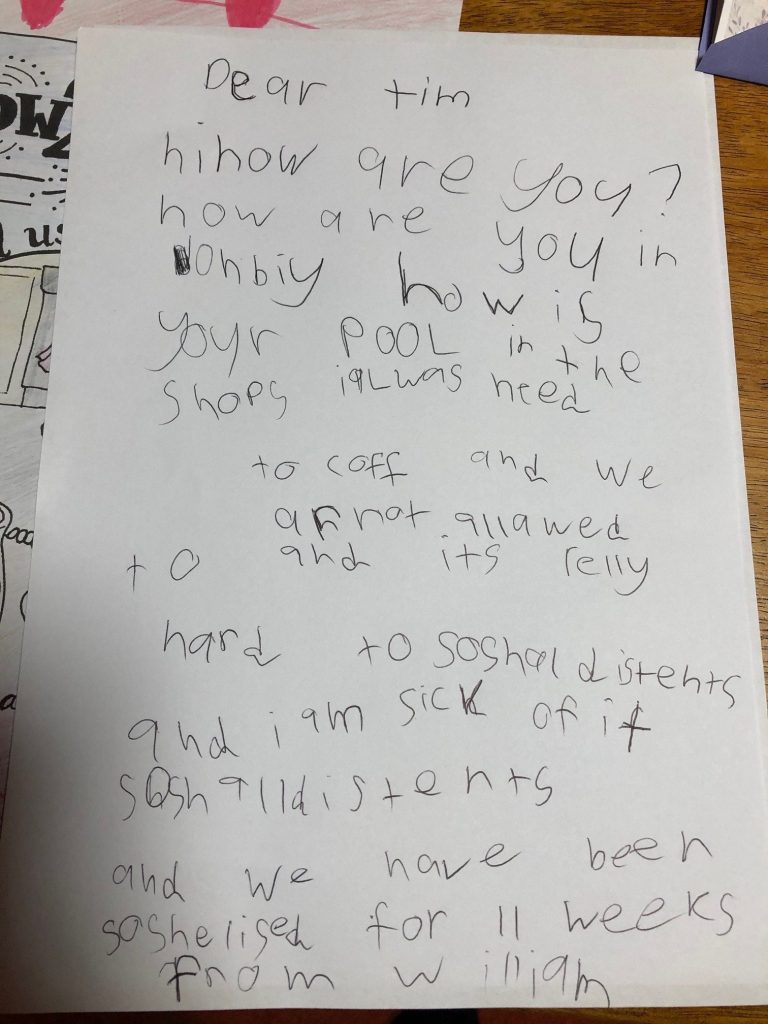 Dear tim
hihow are you?
how are you in
how is
your POOL in the
shops iaLwas need
to coff and we
ar not allawed
to and its relly
hard to soshal distents
and i am sick of it
soshalldistents
and we have been
soshelised for 11 weeks
From william